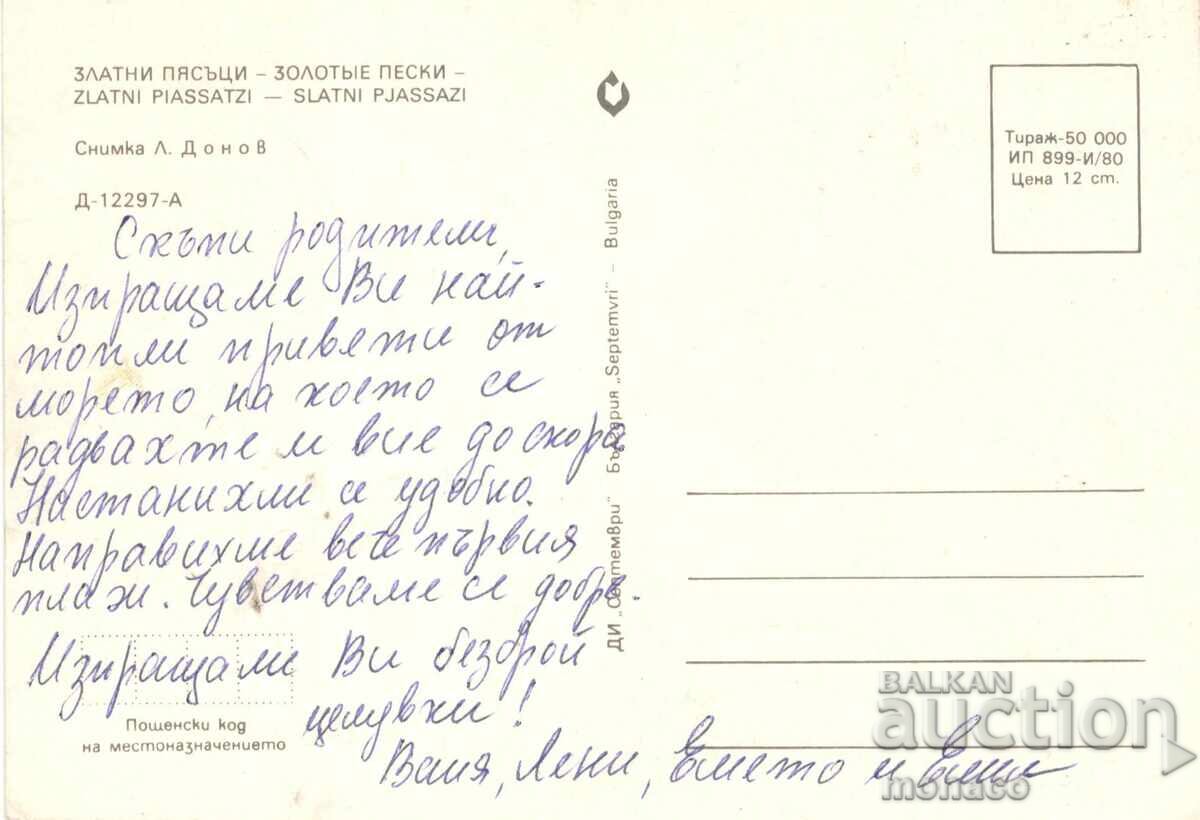 ЗЛАТНИ ПЯСЪЦИ – ЗОЛОТЫЕ ПЕСКИ –
ZLATNI PIASSATZI — SLATNI PJASSAZI
Снимка Л. Донов
Д-12297-А
Скъпи родители,
Изпращаме Ви най-
топли привети от
морето, на което се
радвахте и вие доскоро
Настанихми се удобно.
Направихме вече първия
плаж. Чувстваме се добре.
Изпращами Ви безброй
целувки!
Ваня, Лени, Емето и Емил
Пощенски код
на местоназначението
ДИ „Септември" България „Septemvri" – Bulgaria
Тираж-50 000
ИП 899-И/80
Цена 12 ст.
BALKAN
auction
monaco